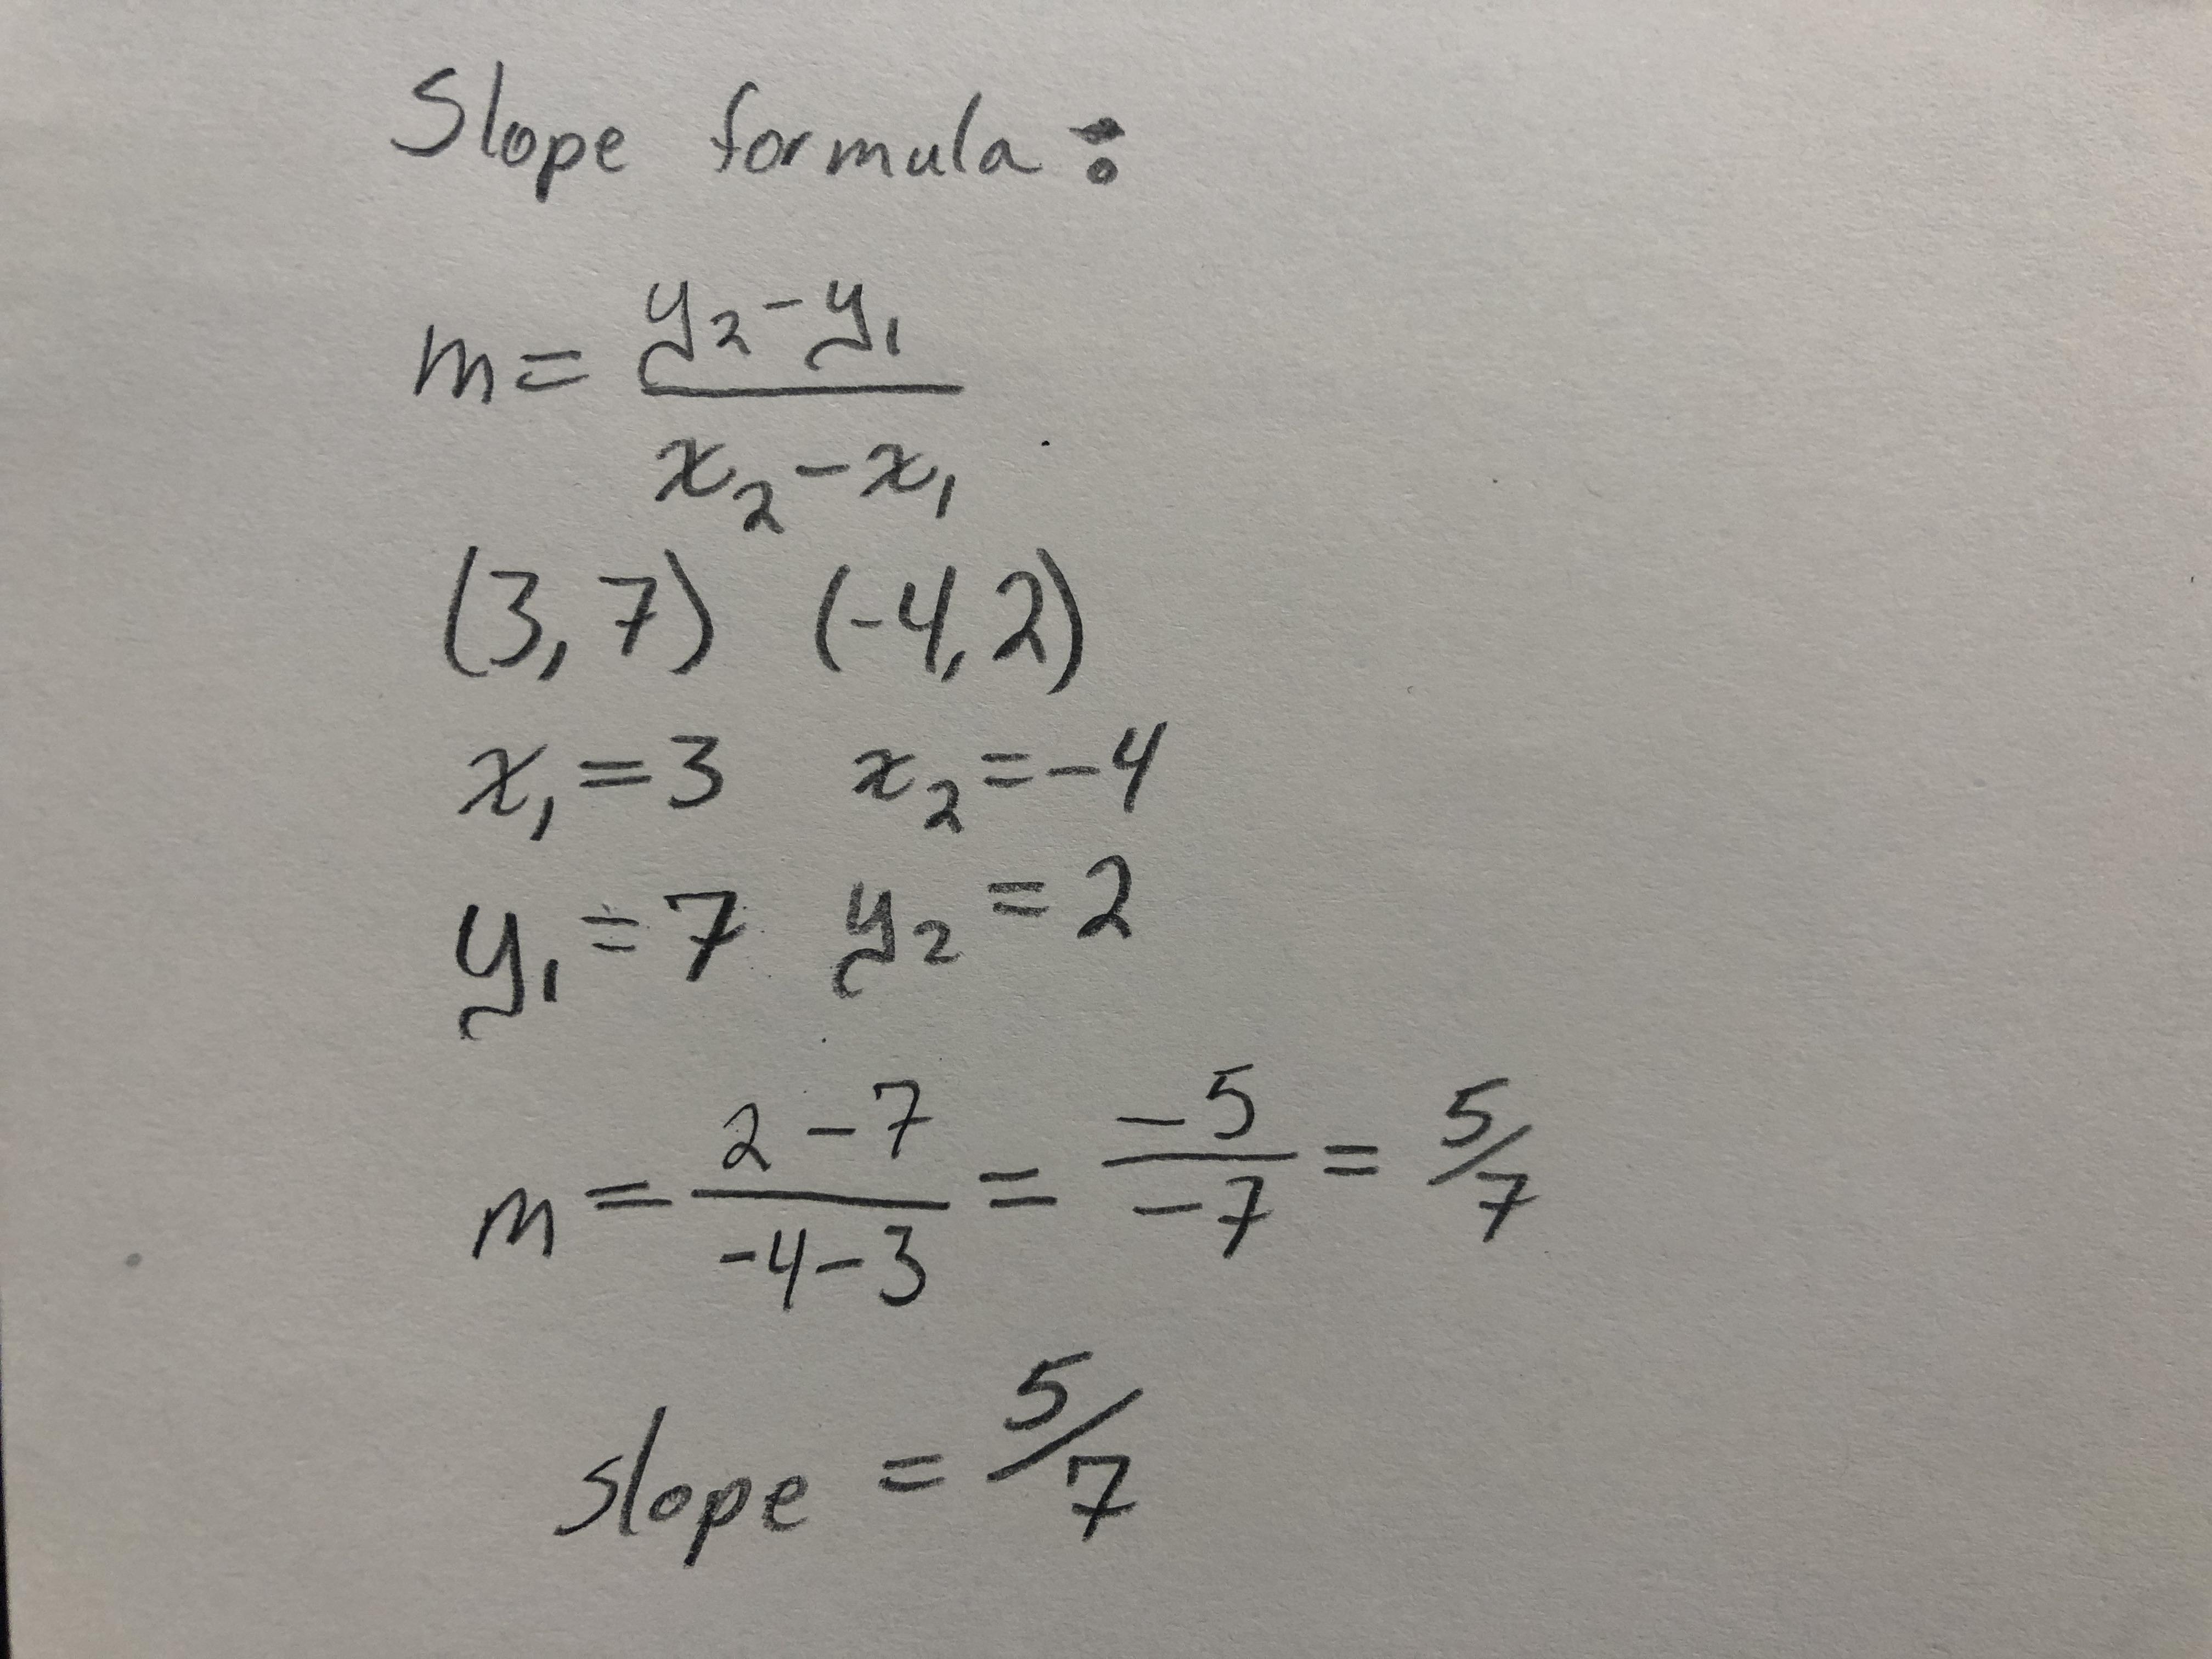 Slope formula:
m = (y₂ - y₁) / (x₂ - x₁)
(3, 7) (-4, 2)
x₁ = 3 x₂ = -4
y₁ = 7 y₂ = 2
m = (2 - 7) / (-4 - 3) = -5 / -7 = 5/7
slope = 5/7